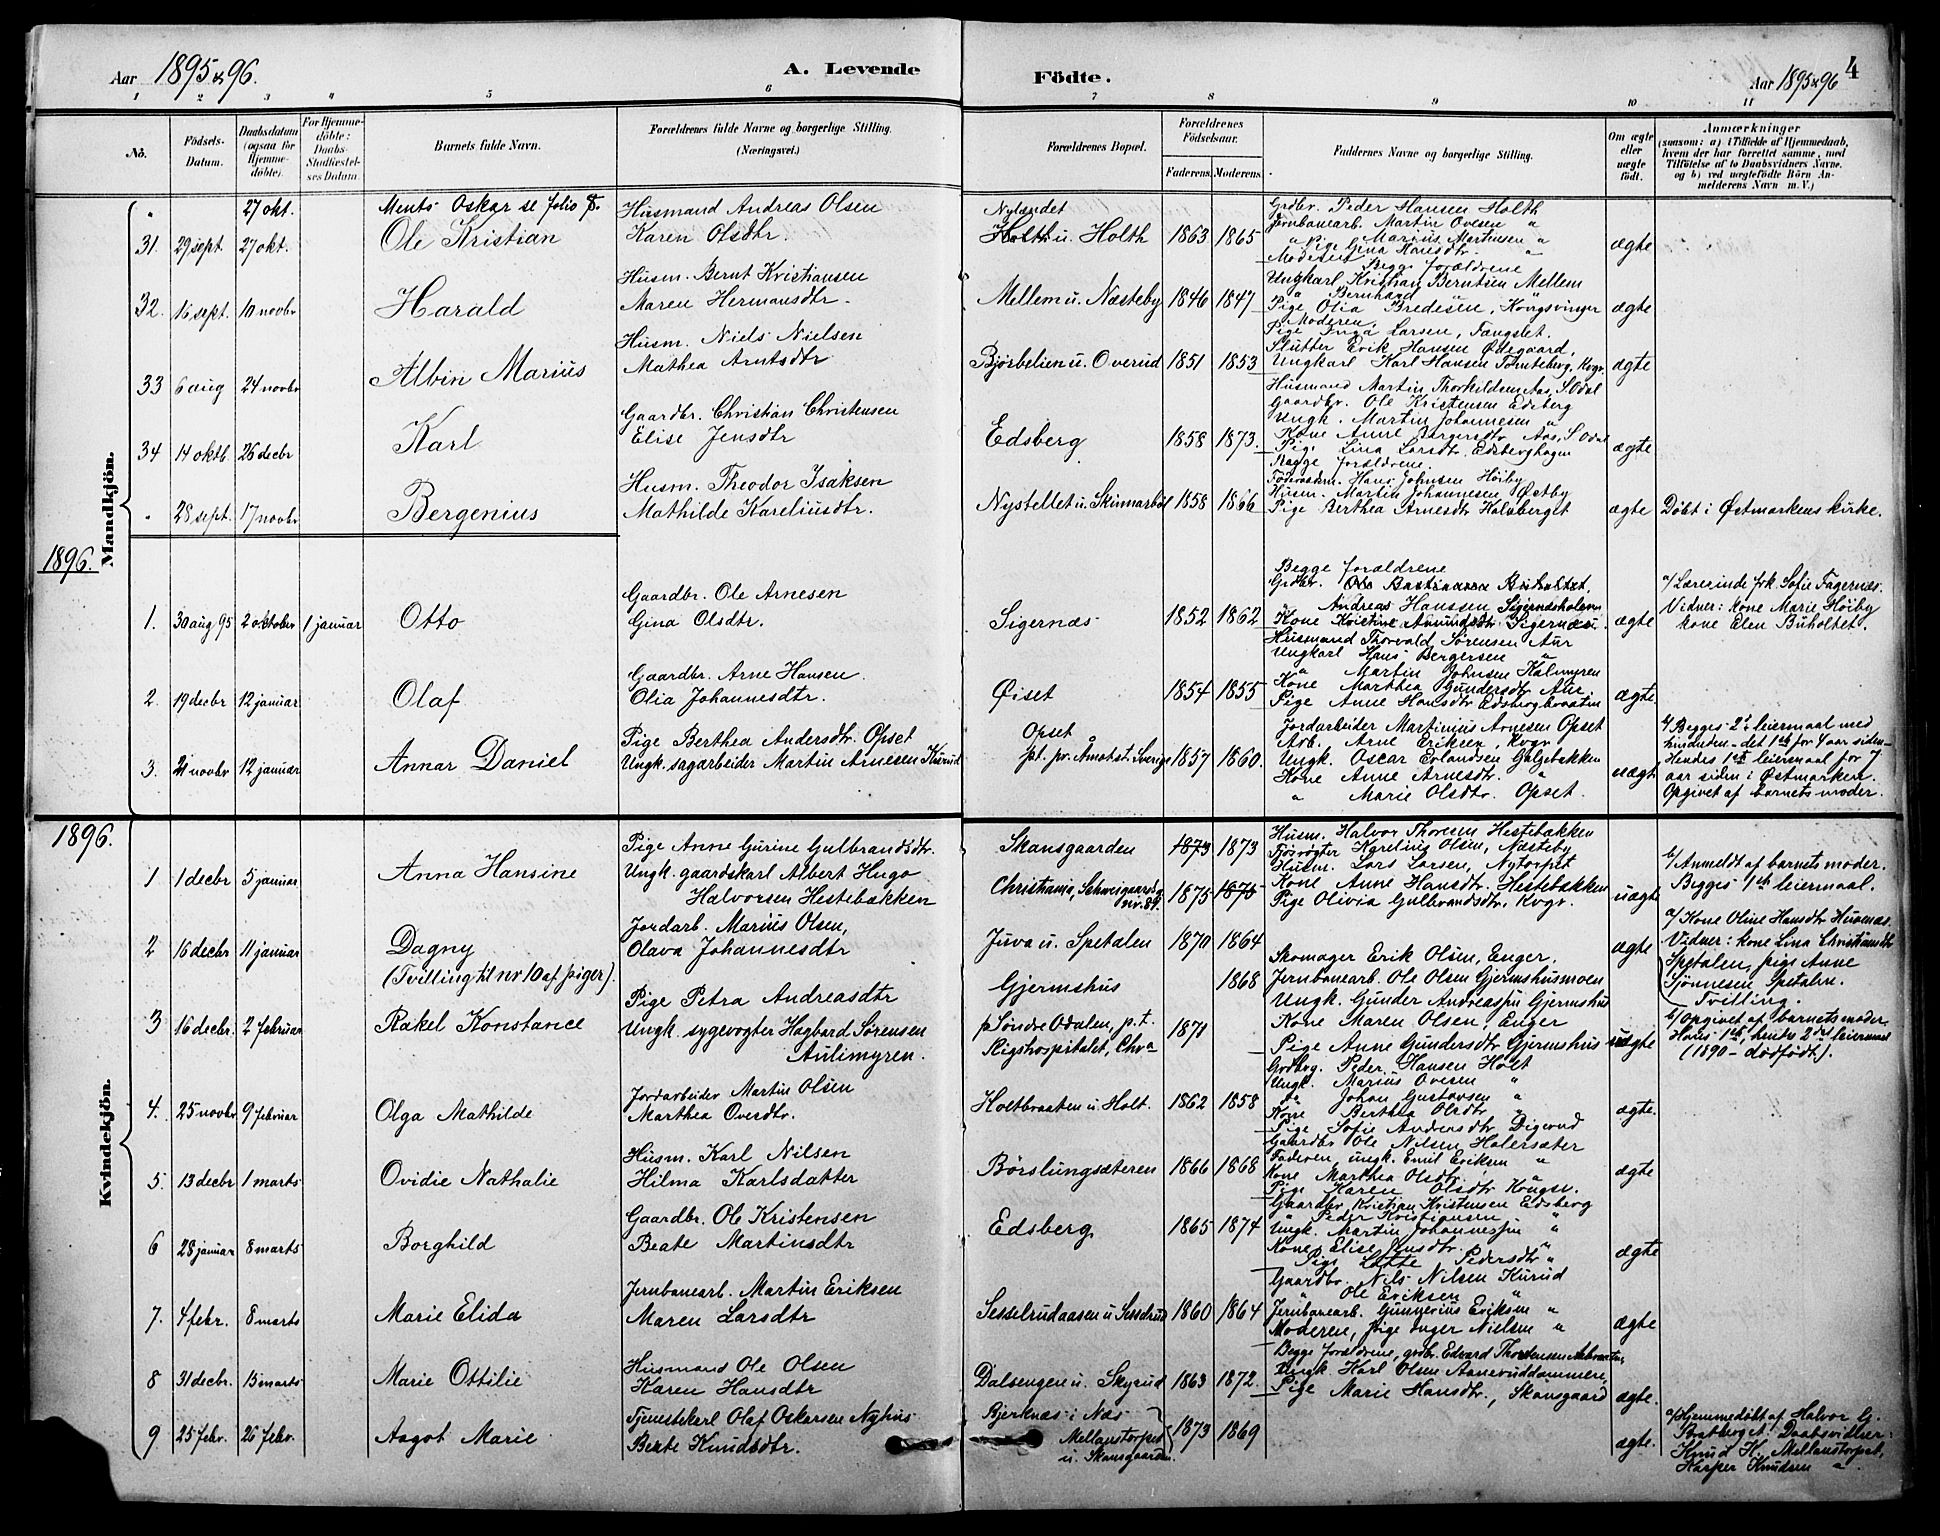 Aar 1895 & 96.
A. Levende Födte.
Aar 1895 & 96
4
1 2 3 4 5 6 7 8 9 10 11
No.
Födsels-Datum.
Daabsdatum (ogsaa for Hjemme-döbte).
For Hjemme-döbte: Daabs-Stadfæstel-ses Datum.
Barnets fulde Navn.
Forældrenes fulde Navne og borgerlige Stilling. (Næringsvei.)
Forældrenes Bopæl.
Forældrenes Födselsaar.
Faderens. Moderens.
Faddernes Navne og borgerlige Stilling.
Om ægte eller uægte födt.
Anmærkninger
(saasom: a) i Tilfælde af Hjemmedaab, hvem der har forrettet samme, med Tilföielse af to Daabsvidners Navne, og b) ved uægtefödte Börn Anmelderens Navn m. V.)
Mandkjön.
" 27 okt. Ments Oskar se folio 8.
31. 29 sept. 27 okt. Ole Kristian
Husmand Andreas Olsen
Karen Olsdtr.
Nylændet
u. Holth 1863 1865
Grdbr. Peder Hansen Holth
Jernbanearb. Martin Ovesen "
" Marius Martinsen "
ægte
32. 16 sept. 10 novbr Harald
Husm. Bernt Kristiansen
Maren Hermansdtr.
Mellem u. Næsteby 1846 1847
Begge forældrene
Ungkarl Kristian Berntsen Mellem
" Bernhard
Pige Olia Bredesen, Kongsvinger
ægte
33 6 aug 24 novbr Albin Marius
Husm. Niels Nielsen
Mathea Arntsdtr
Bjørbelien u. Overud 1851 1853
Moderen,
Pige Inga Larsen, Fangslet.
Slutter Erik Hansen Ødegaard,
Ungkarl Karl Hansen Tomteberg, Kvgr.
ægte
34 14 oktb. 26 decbr Karl
Gaardbr. Christian Christensen
Elise Jensdtr
Edsberg 1858 1873.
Husmand Martin Thorkildsen Aas, S. Odal
Gaardbr. Ole Kristensen Edsberg
Ungk. Martin Johannesen "
Kone Anne Børgersdtr Aas, S. Odal
Pige Lina Larsdtr. Edsberghagen
ægte
" 28 sept. 17 novbr Bergenius
Husm. Theodor Isaksen
Mathilde Kareliusdtr.
Nystellet u. Skinnarbøl 1858 1866
Begge forældrene.
Hans Johnsen Høiby
Husm. Martin Johannesen Østby
Pige Berthea Arnesdtr Halvberget
ægte
Døbt i Østmarkens kirke.
1896.
1. 30 aug 95 2 oktober 1 januar Otto
Gaardbr. Ole Arnesen
Gina Olsdtr.
Sigernæs 1852 1862
Begge forældrene
Grdbr. Ole Bastiansen Buholtet.
Andreas Hanssen Sigernæsholmen
Kone Kristine Amundsdtr Sigernæs.
ægte
a/ Lærerinde frk. Sofie Fagernæs.
Vidner: kone Marie Høiby
kone Elen Buholtet.
2. 19 decbr 12 januar Olaf
Gaardbr. Arne Hansen
Olia Johannesdtr.
Øiset 1854 1855
Husmand Thorvald Sørensen Aur
Ungkarl Hans Bergersen "
" Martin Johnsen Kalmyren
Kone Marthea Gundersdtr Aur
Pige Anne Hansdtr Edsbergbraaten
ægte.
3. 21 novbr 12 januar Annar Daniel
Pige Berthea Andersdtr. Opset
Ungk. sagarbeider Martin Arnesen Kurud
Opset
pt. pr. Åmot st. Sverige 1857 1860.
Jordarbeider Martinius Arnesen Opset
Arb. Arne Eriksen, Kvgr.
Ungk. Oscar Erlandsen Galgebakken
Kone Anne Arnesdtr. "
" Marie Olsdtr. Opset.
uægt
b/ Begges 2. leiermaal med
hinanden - det 1ste for 4 aar siden -
Hendes 1ste leiermaal for 7
aar siden i Østmarken.
Opgivet af barnets moder.
1896.
Kvindekjön.
1 1 decbr 5 januar Anna Hansine
Pige Anne Gurine Gulbrandsdtr.
Ungk. gaardskarl Albert Hugo
Halvorsen Hestebækken
Skansgaarden 1873 1873
Christiania, Schweigaardsg. nr. 89. 1875 1875
Husm. Halvor Thoresen Hestebækken
Fjøsrøgter Karelius Olsen, Næsteby
Husm. Lars Larsen, Nytorpet
Kone Anne Hansdtr. Hestebækken
Pige Olivia Gulbrandsdtr, Kvgr.
uægte
b/ Anmeldt af barnets moder.
Begges 1ste leiermaal.
2 16 decbr 11 januar Dagny
(Tvilling til nr 10 af piger).
Jordarb. Marius Olsen,
Olava Johannesdtr
Juva u. Spetalen 1870 1864
ægte
a/ Kone Oline Hansdtr Husenæs.
Vidner: kone Lina Christiansdtr
Spetalen, pige Anne
Tjønnesen Spetalen.
Tvilling.
3 16 decbr. 2 februar Rakel Konstance
Pige Petra Andreasdtr
Ungk. sygevogter Hagbard Sørensen
Aulimyren.
Gjermshus 1868
p Søndre Odalen, p.t. 1871
Rigshospitalet, Chra
Skomager Erik Olsen, Enger.
Jernbanearb. Ole Olsen Gjermshusmoen
Ungk. Gunder Andreassen Gjermshus
Kone Maren Olsen, Enger
Pige Anne Gundersdtr Gjermshus
uægte
b/ Opgivet af barnets moder
Hans 1ste, hendes 2det leiermaal
(1890 - dødfødt).
4. 25 novbr 9 februar Olga Mathilde
Jordarbeider Martin Olsen
Marthea Oversdtr.
Holtbraaten u. Holt. 1862 1858
Grdbrg. Peder Hansen Holt
Ungk. Marius Ovesen "
" Johan Gustavsen "
Kone Berthea Olsdtr "
Pige Sofie Andersdtr Digerud
ægte.
5. 13 decbr 1 marts Ovidie Nathalie
Husm. Karl Nilsen
Hilma Karlsdatter
Børslungsæteren 1866 1868
Gaardbr Ole Nilsen Holersæter
Faderen, ungk. Emil Eriksen "
Kone Marthea Olsdtr. "
Pige Karen Olsdtr Kongsv.
ægte
6 28 januar 8 marts Borghild
Gaardbr. Ole Kristensen
Beate Martinsdtr
Edsberg 1865 1874
Gaardbr Kristian Kristensen Edsberg
" Peder Kristiansen "
Ungk. Martin Johannessen "
Kone Elise Jensdtr. "
Pige Lotte Pedersdtr "
ægte
7. 4 febr. 8 marts Marie Elida
Jernbanearb. Martin Eriksen
Maren Larsdtr
Sesselrudaasen u. Sesselrud 1860 1864
Gaardbr. Nils Nilsen Kurud
" Ole Eriksen "
Jernbanearb. Gunnerius Eriksen "
Moderen, Pige Inger Nielsen "
ægte
8 31 decbr. 15 marts Marie Ottilie
Husmand Ole Olsen
Karen Hansdtr
Dalsengen u. Skyrud 1863 1872.
Begge forældrene, grdbr. Edvard Thordensen
Ungk. Karl Olsen
Pige Marie Hansdtr., Skansgaard
ægte.
9 25 febr. 26 febr. Aagot Marie
Tjenestekarl Olaf Oskarsen Nyhus
Berte Knudsdtr.
Bjerknæs i Næs
Mellanstorpet
u. Skansgaarden. 1873 1869
ægte.
a/ Hjemmedøbt af Halvor G.
Bratberget. Daabsvidner:
Knud H. Mellanstorpet,
Kasper Knudsen "